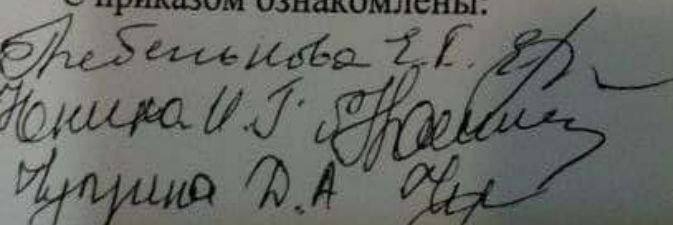 С приказом ознакомлены:
Гребенькова Е.Г.
Юнина И.Г.
Чуприна Д.А